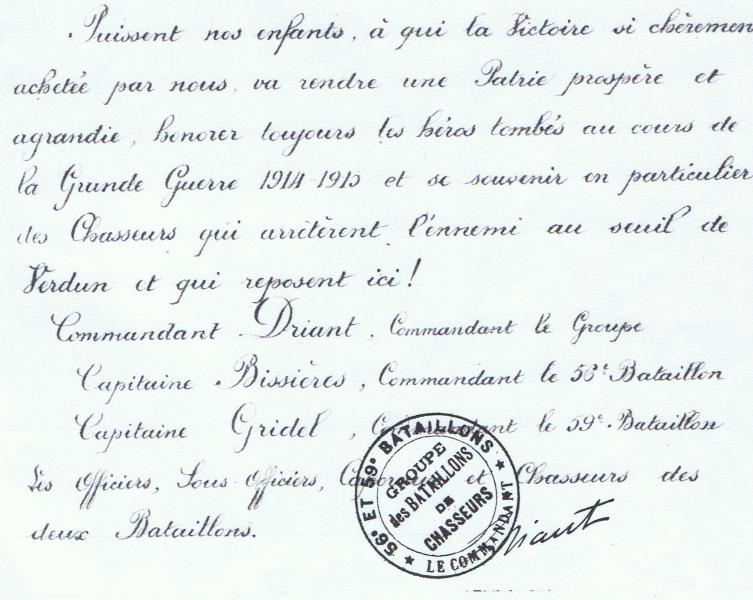 Puissent nos enfants, à qui la Victoire si chèremen
achetée par nous, va rendre une Patrie prospère et
agrandie, honorer toujours les héros tombés au cours de
la Grande Guerre 1914-1915 et se souvenir en particulier
des Chasseurs qui arrêtèrent l'ennemi au seuil de
Verdun et qui reposent ici!
Commandant Driant, Commandant le Groupe
Capitaine Bissières, Commandant le 56e Bataillon
Capitaine Gridel, Commandant le 59e Bataillon
Les Officiers, Sous-Officiers, Caporaux et Chasseurs des
deux Bataillons.
56e ET 59e BATAILLONS
GROUPE
des BATAILLONS
DE
CHASSEURS
LE COMMANDANT
Driant